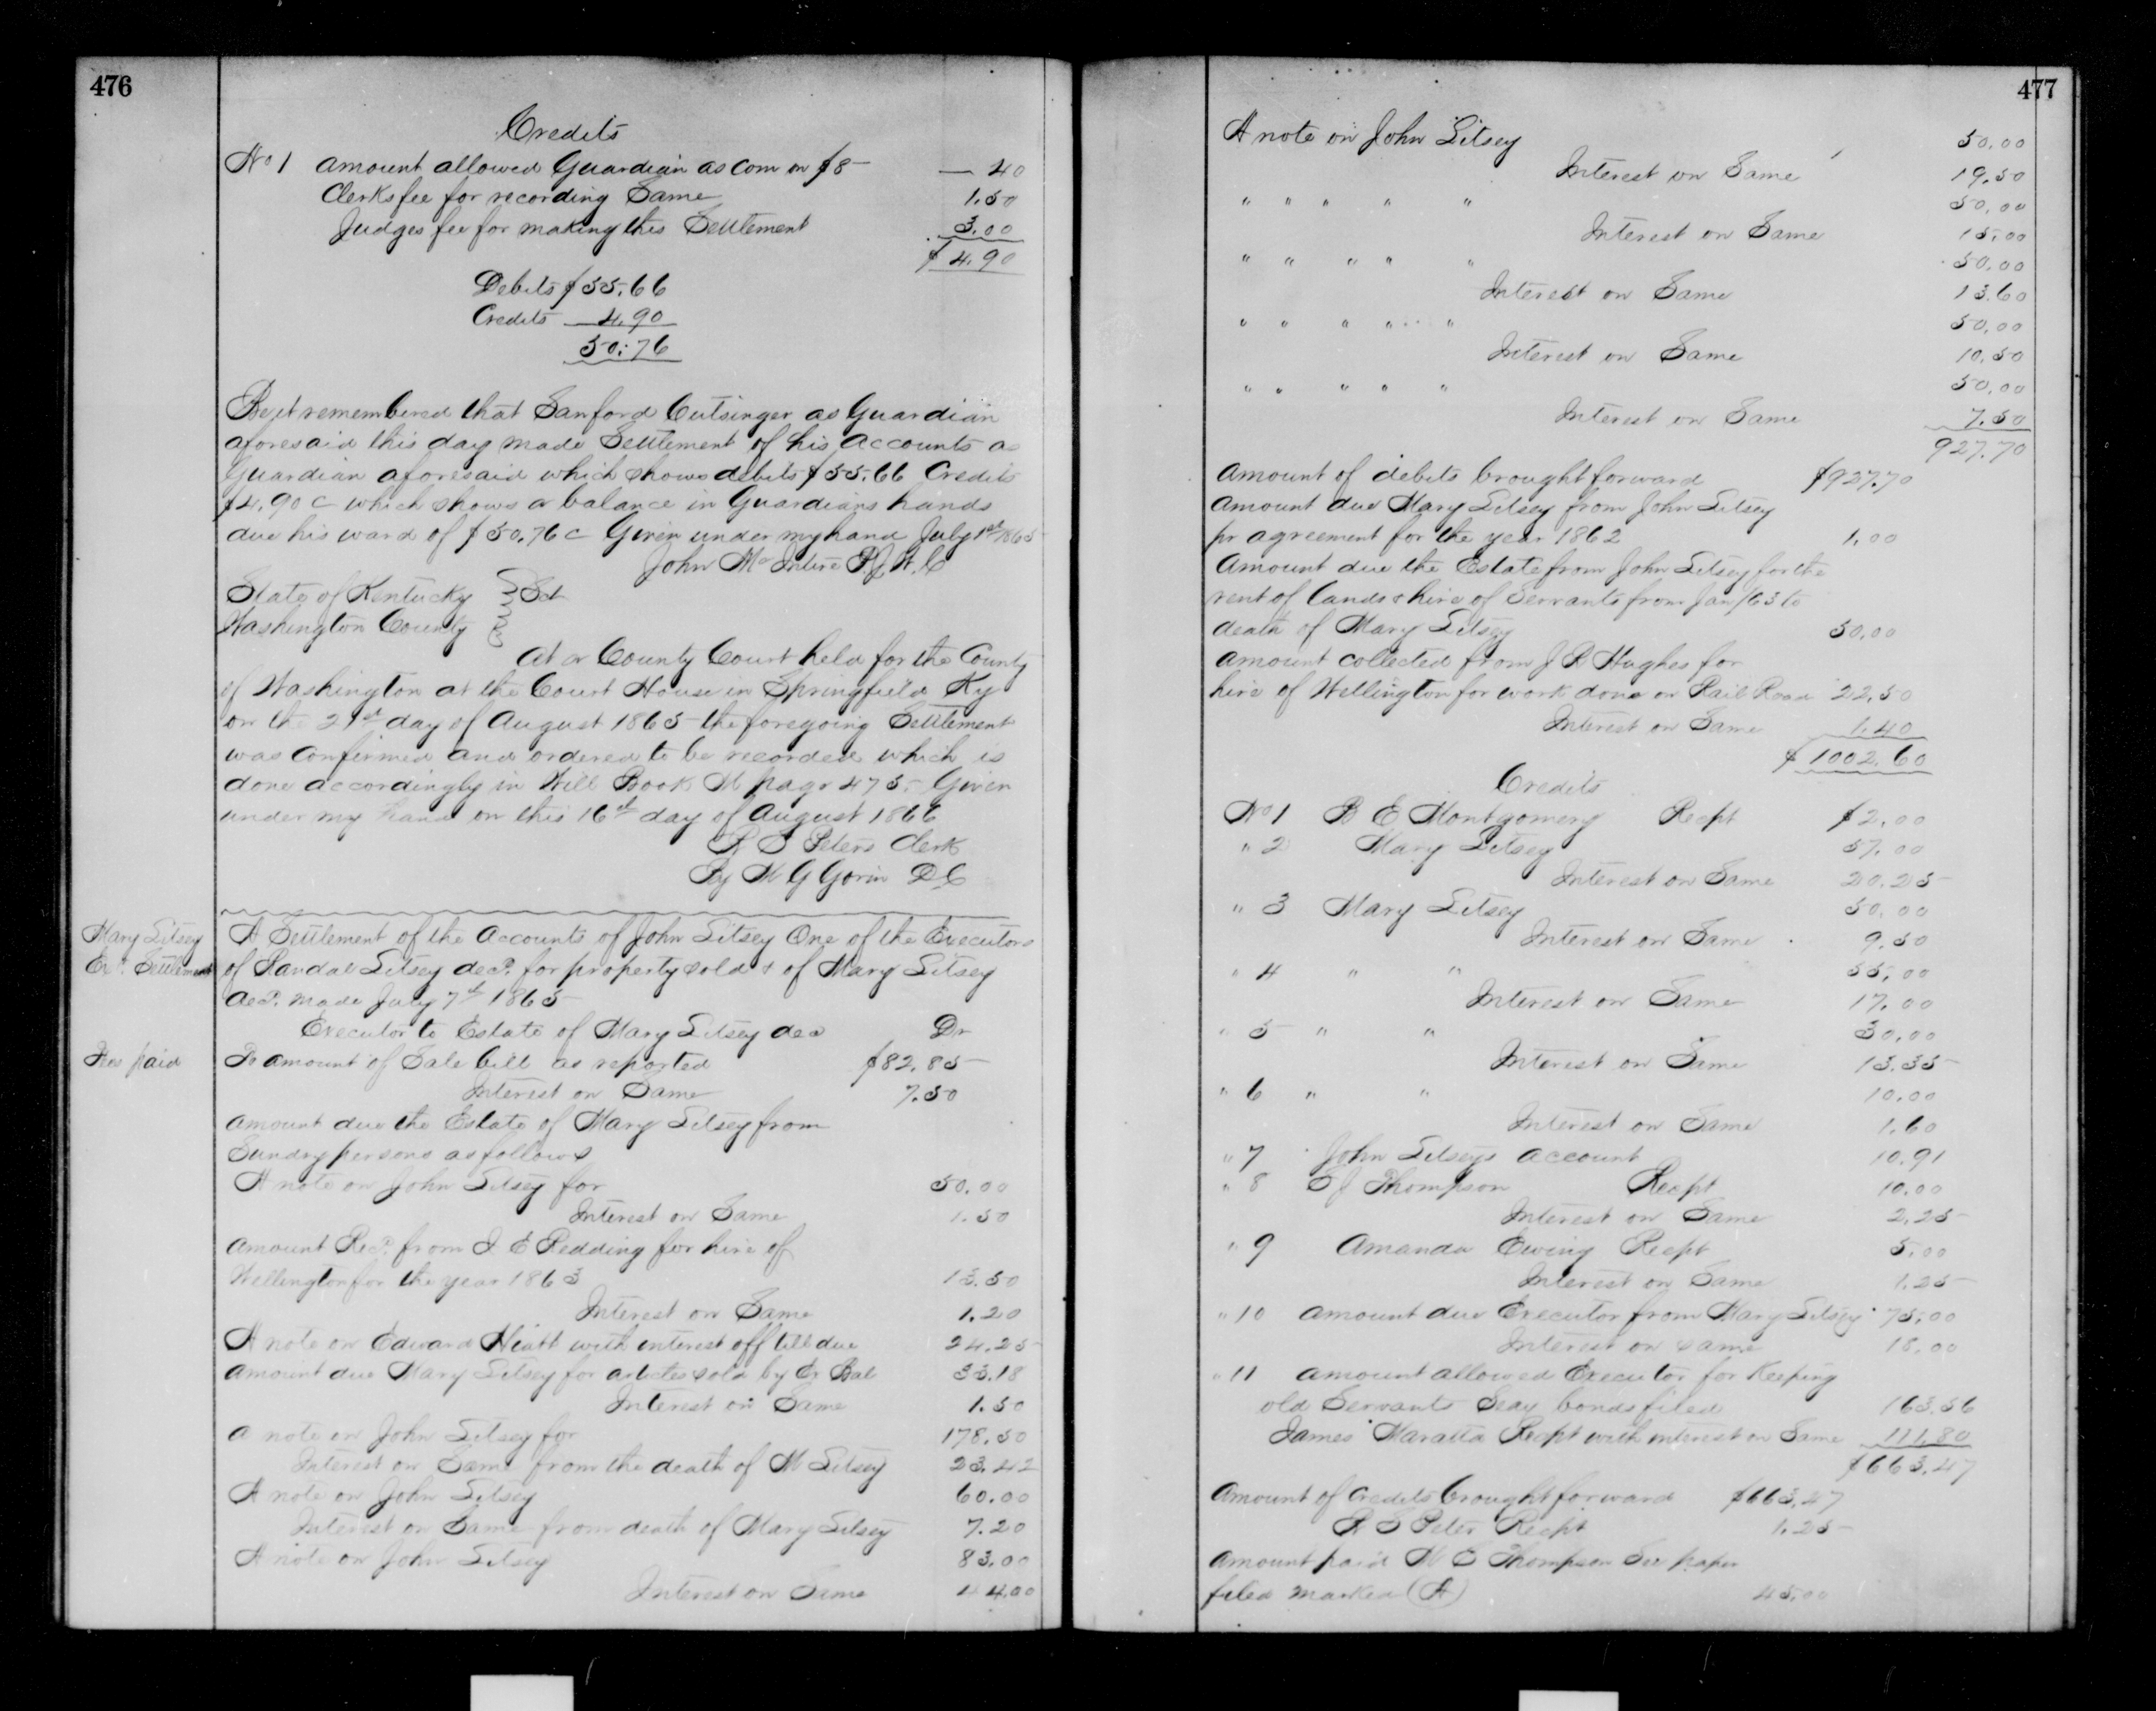 476
Credits
No 1 amount allowed Guardian as Com on $8 — 40
Clerks fee for recording Same 1.50
Judges fee for making this Settlement 3.00
$ 4.90
Debits $55.66
Credits 4.90
50.76
Be it remembered that Sanford Cutsinger as Guardian
aforesaid this day made Settlement of his accounts as
Guardian aforesaid which shows debits $55.66 Credits
$4.90 c which shows a balance in Guardians hands
due his ward of $50.76 c Given under my hand July 1st 1865
John McIntire P.J.W.C
State of Kentucky } Sct
Washington County
At a County Court held for the County
of Washington at the Court House in Springfield Ky
on the 21st day of August 1865 the foregoing Settlement
was Confirmed and ordered to be recorded which is
done accordingly in Will Book M page 475. Given
under my hand on this 16th day of August 1866
R S Peters Clerk
By M G Gorin DC
Mary Litsey
Exr. Settlement
A Settlement of the Accounts of John Litsey One of the Executors
of Randal Litsey decd. for property sold & of Mary Litsey
decd. made July 7th 1865
Executor to Estate of Mary Litsey decd Dr
Fee paid
To amount of Sale bill as reported $82.85
Interest on Same 7.50
amount due the Estate of Mary Litsey from
Sundry persons as follows
A note on John Litsey for 50.00
Interest on Same 1.50
Amount Recd. from J E Redding for hire of
Wellington for the year 1863 13.50
Interest on Same 1.20
A note on Edward Hiatt with interest off till due 24.25
amount due Mary Litsey for articles sold by Ex Bal 33.18
Interest on Same 1.50
A note on John Litsey for 178.50
Interest on Same from the death of M Litsey 23.42
A note on John Litsey 60.00
Interest on Same from death of Mary Litsey 7.20
A note on John Litsey 83.00
Interest on Same 44.00
477
A note on John Litsey 50.00
Interest on Same 19.50
" " " " " 50.00
Interest on Same 15.00
" " " " " 50.00
Interest on Same 13.60
" " " " " 50.00
Interest on Same 10.50
" " " " " 50.00
Interest on Same 7.50
927.70
Amount of debits brought forward $927.70
Amount due Mary Litsey from John Litsey
pr agreement for the year 1862 1.00
Amount due the Estate from John Litsey for the
rent of lands & hire of Servants from Jan/63 to
death of Mary Litsey 50.00
amount collected from J R Hughes for
hire of Wellington for work done on Rail Road 22.50
Interest on Same 1.40
$ 1002.60
Credits
No 1 B E Montgomery Recpt $2.00
" 2 Mary Litsey 57.00
Interest on Same 20.25
" 3 Mary Litsey 50.00
Interest on Same 9.50
" 4 " " 55.00
Interest on Same 17.00
" 5 " " 30.00
Interest on Same 13.35
" 6 " " 10.00
Interest on Same 1.60
" 7 John Litseys account 10.91
" 8 E J Thompson Recpt 10.00
Interest on Same 2.25
" 9 Amanda Ewing Recpt 5.00
Interest on Same 1.25
" 10 amount due Executor from Mary Litsey 75.00
Interest on same 18.00
" 11 amount allowed Executor for Keeping
old Servants Seay bonds filed 163.56
James Maratta Recpt with interest on Same 111.80
$663.47
Amount of Credits brought forward $663.47
R S Peter Recpt 1.25
Amount paid M E Thompson See paper
filed marked (A) 45.00